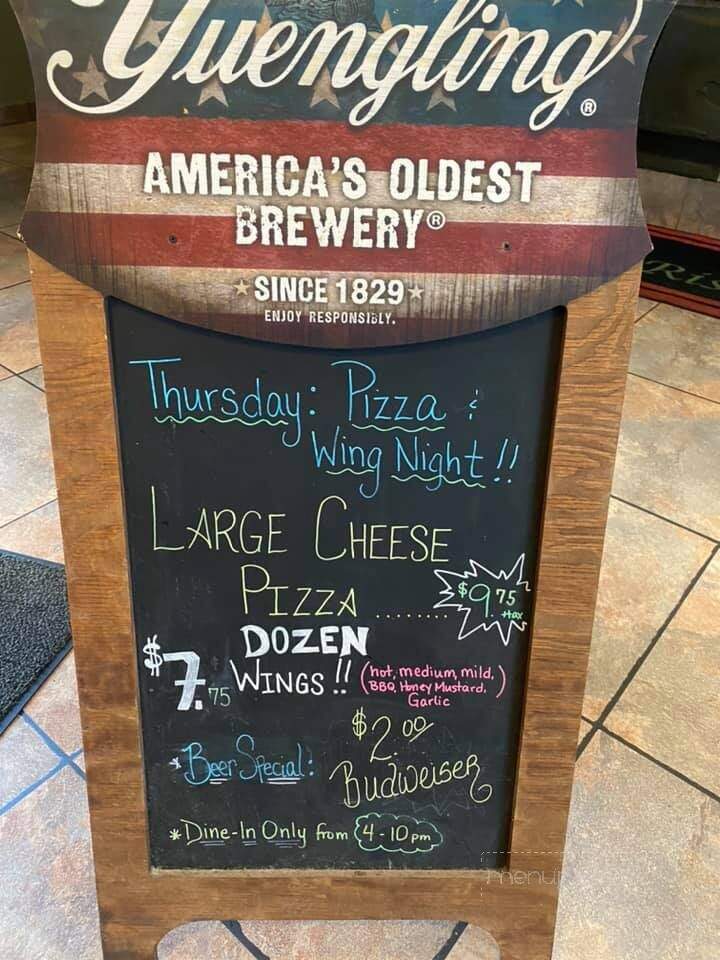 Yuengling®
AMERICA'S OLDEST
BREWERY®
SINCE 1829
ENJOY RESPONSIBLY.
Thursday: Pizza &
Wing Night!!
LARGE CHEESE
PIZZA ........ $9.75
+tax
DOZEN
$7.75 WINGS!! (hot, medium, mild,
BBQ, Honey Mustard,
Garlic)
$2.00
*Beer Special: Budweiser
*Dine-In Only from 4-10pm